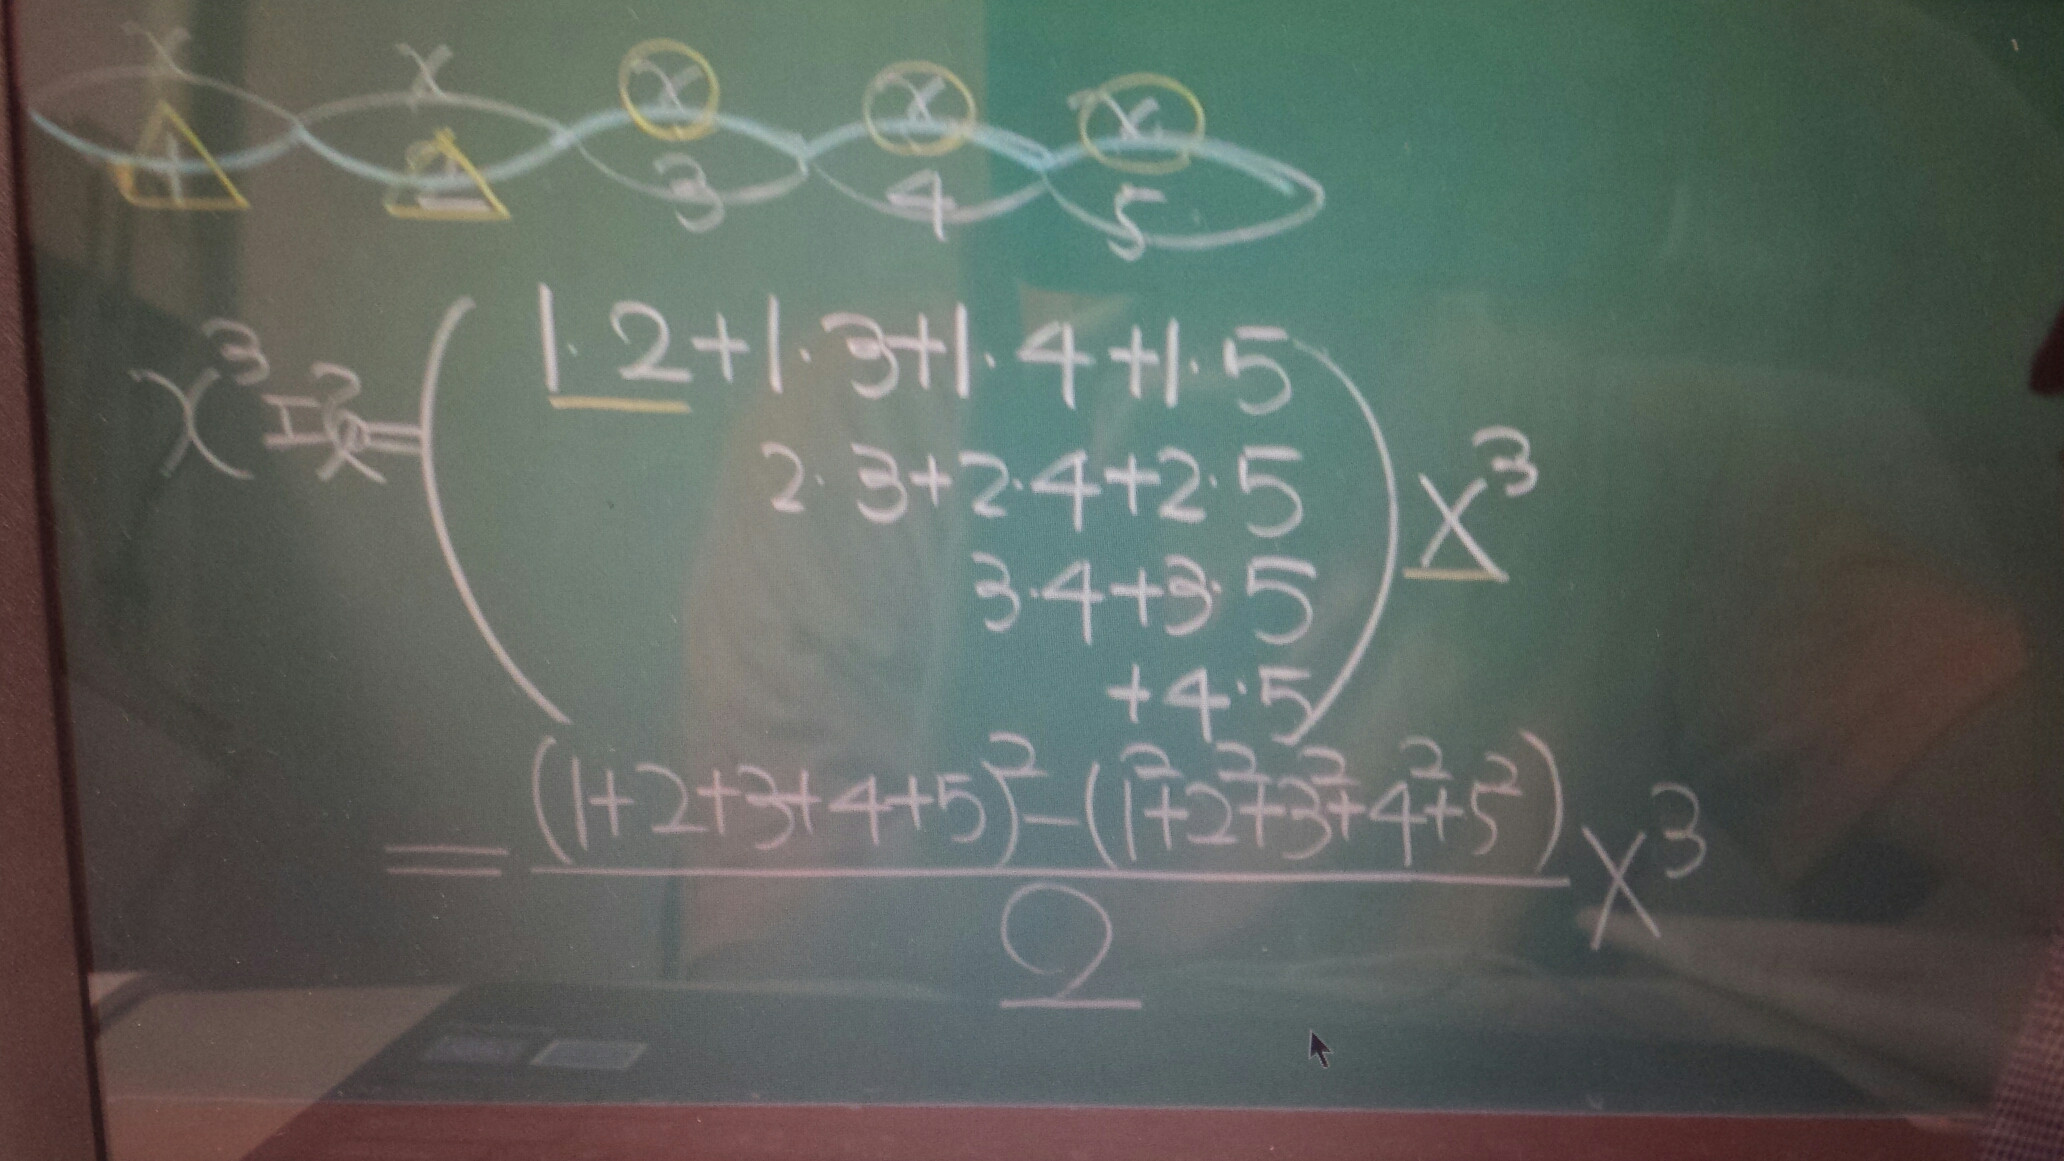 x x x x x
1 2 3 4 5
x³ = (1·2+1·3+1·4+1·5
2·3+2·4+2·5
3·4+3·5
+4·5) x³
= (1+2+3+4+5)² - (1²+2²+3²+4²+5²) x³
2